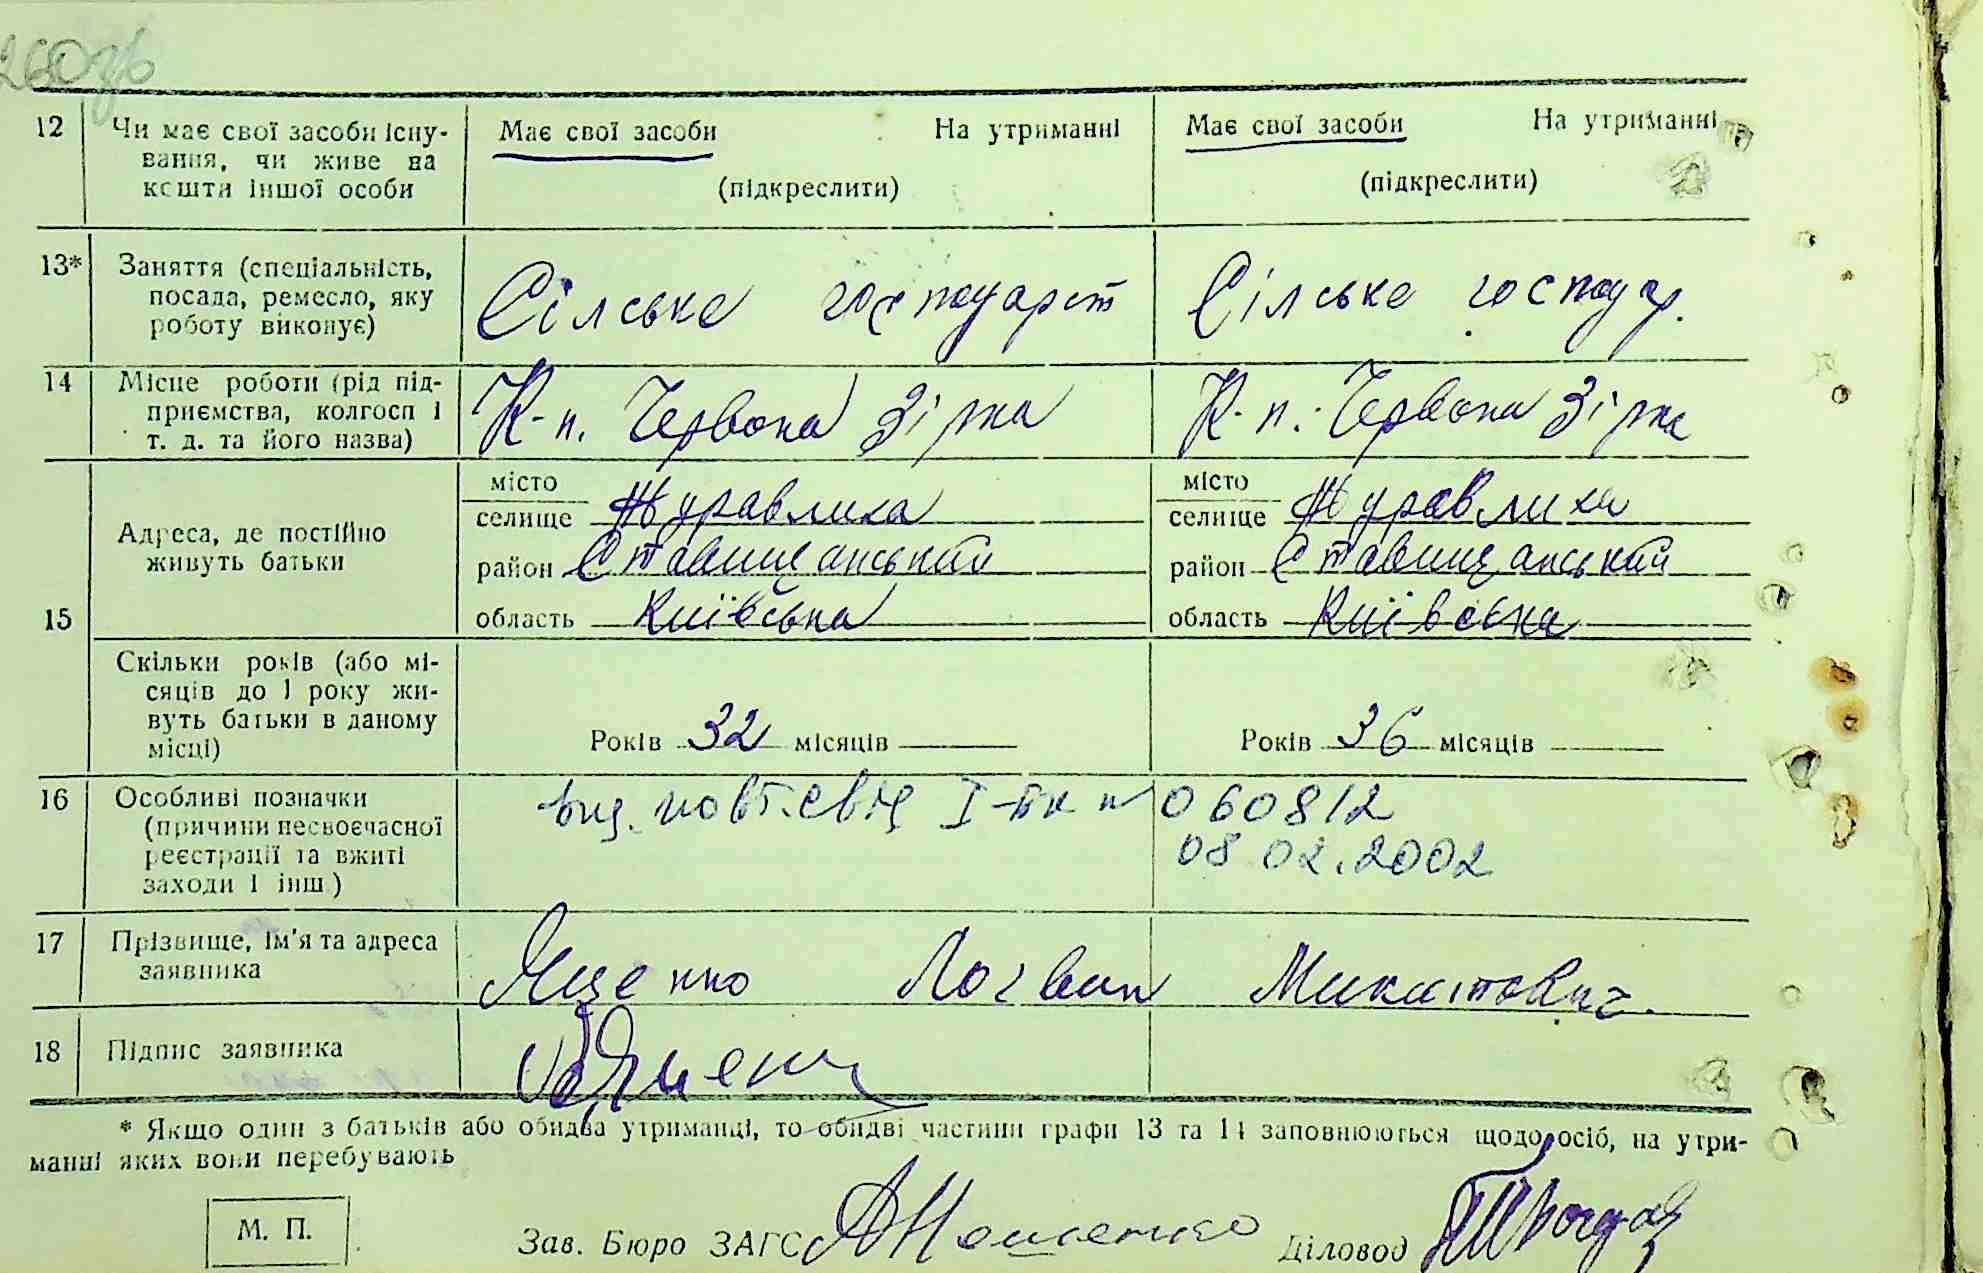 260зв
12 Чи має свої засоби існу- Має свої засоби На утриманні Має свої засоби На утриманні
вання, чи живе на
кошти іншої особи (підкреслити) (підкреслити)
13* Заняття (спеціальність,
посада, ремесло, яку Сілське господарст Сілське господар.
роботу виконує)
14 Місце роботи (рід під-
приємства, колгосп і К-п. Червона Зірка К-п. Червона Зірка
т. д. та його назва)
місто місто
селище Журавлиха селище Журавлиха
Адреса, де постійно
живуть батьки район Ставищанський район Ставищанський
15 область Київська область Київська
Скільки років (або мі-
сяців до 1 року жи-
вуть батьки в даному
місці) Років 32 місяців Років 36 місяців
16 Особливі позначки вид. повт. свід І-БК № 060812
(причини несвоєчасної
реєстрації та вжиті 08.02.2002
заходи і інш.)
17 Прізвище, ім'я та адреса
заявника Яценко Логвин Микитович.
18 Підпис заявника
* Якщо один з батьків або обидва утриманці, то обидві частини графи 13 та 14 заповнюються щодо осіб, на утри-
манні яких вони перебувають
М. П. Зав. Бюро ЗАГС Діловод